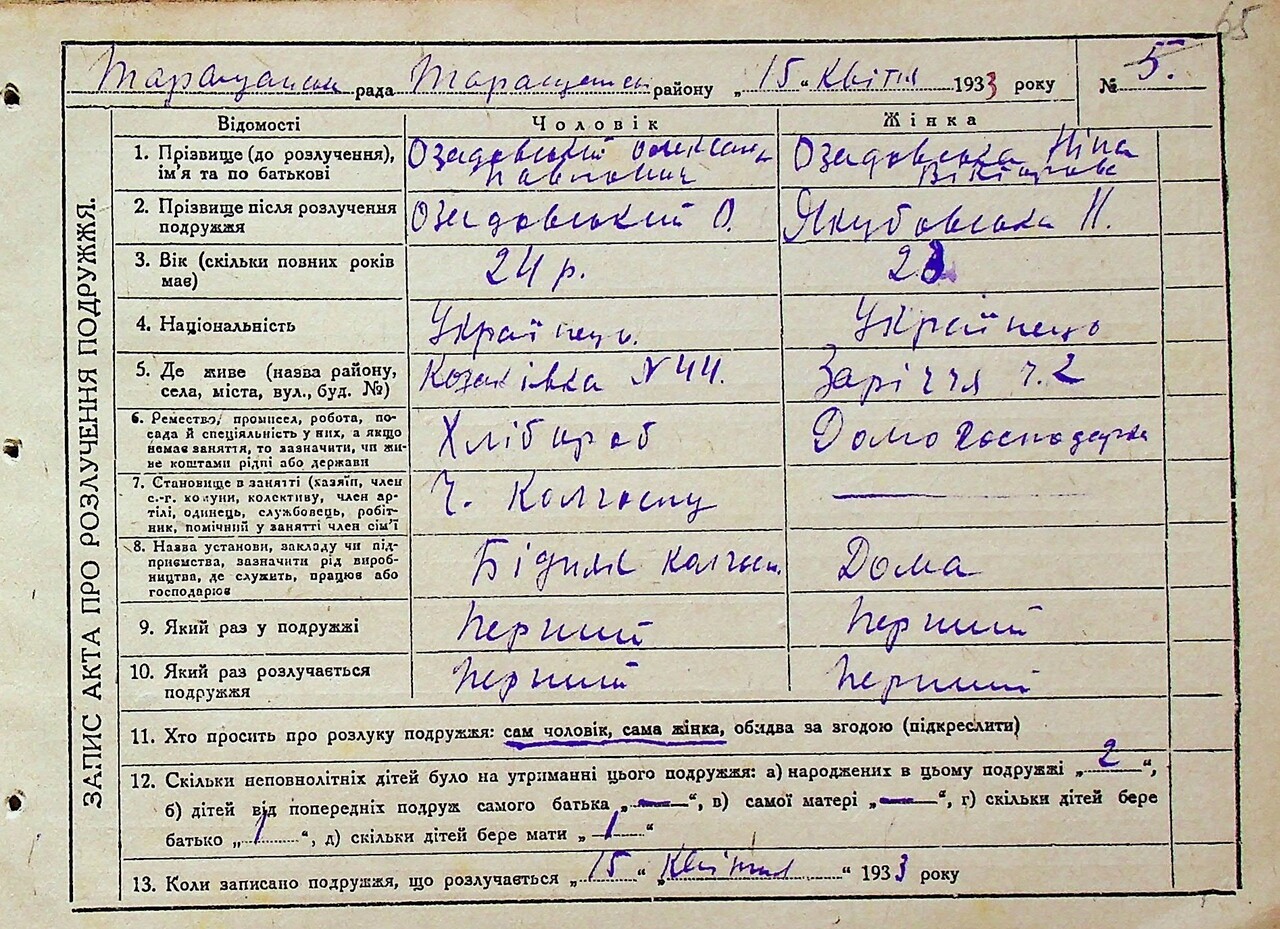 65
Таращанськ рада Таращанськ району „15“ Квітня 1933 року № 5.
ЗАПИС АКТА ПРО РОЗЛУЧЕННЯ ПОДРУЖЖЯ.
Відомості Чоловік Жінка
1. Прізвище (до розлучення), Озадовський Олексан Озадовська Ніна
ім'я та по батькові Павлович Вікторівна
2. Прізвище після розлучення Озадовський О. Якубовська Н.
подружжя
3. Вік (скільки повних років 24 р. 23
має)
4. Національність Українець. Українець
5. Де живе (назва району, Козаківка № 44. Заріччя ч. 2
села, міста, вул., буд. №)
6. Ремество, промисел, робота, по-
сада й спеціяльність у них, а якщо Хлібороб Домогосподарка
немає заняття, то зазначити, чи жи-
ве коштами рідні або держави
7. Становище в занятті (хазяїн, член
с.-г. комуни, колективу, член ар- Ч. Колгоспу
тілі, одинець, службовець, робіт-
ник, помічний у занятті член сім'ї
8. Назва установи, закладу чи під-
приємства, зазначити рід вироб- колгосп. Дома
ництва, де служить, працює або
господарює
9. Який раз у подружжі Перший Перший
10. Який раз розлучається Перший Перший
подружжя
11. Хто просить про розлуку подружжя: сам чоловік, сама жінка, обидва за згодою (підкреслити)
12. Скільки неповнолітніх дітей було на утриманні цього подружжя: а) народжених в цьому подружжі „2“,
б) дітей від попередніх подруж самого батька „—“, в) самої матері „—“, г) скільки дітей бере
батько „1“, д) скільки дітей бере мати „1“
13. Коли записано подружжя, що розлучається „15“ „Квітня“ 1933 року